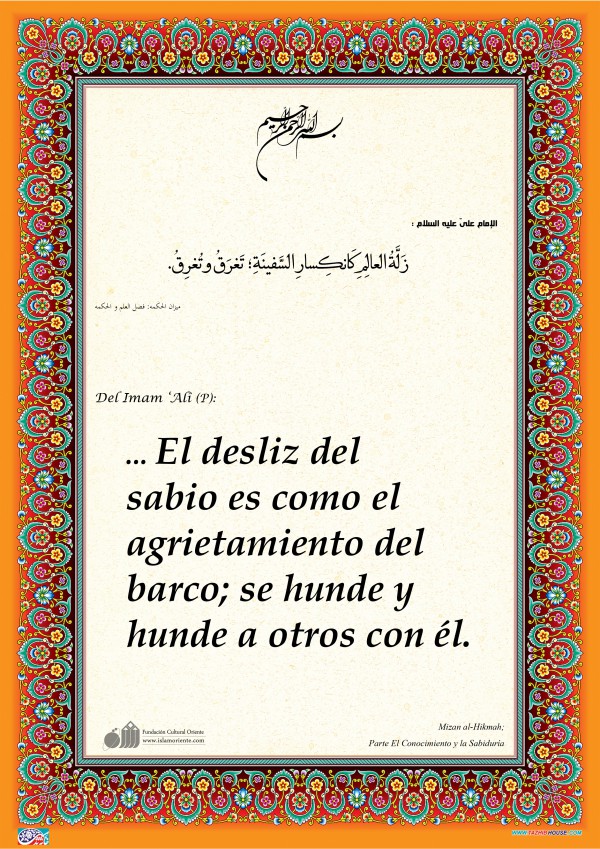 بسم الله الرحمن الرحيم
الإمام عليّ عليه السلام :
زَلَّةُ العالِمِ كَانكِسارِ السَّفينَةِ؛ تَغرَقُ وتُغرِقُ.
ميزان الحكمه: فضل العلم و الحكمه
Del Imam ‘Alî (P):
... El desliz del
sabio es como el
agrietamiento del
barco; se hunde y
hunde a otros con él.
Mizan al-Hikmah;
Parte El Conocimiento y la Sabiduría
Fundación Cultural Oriente
www.islamoriente.com
WWW.TAZHIBHOUSE.COM